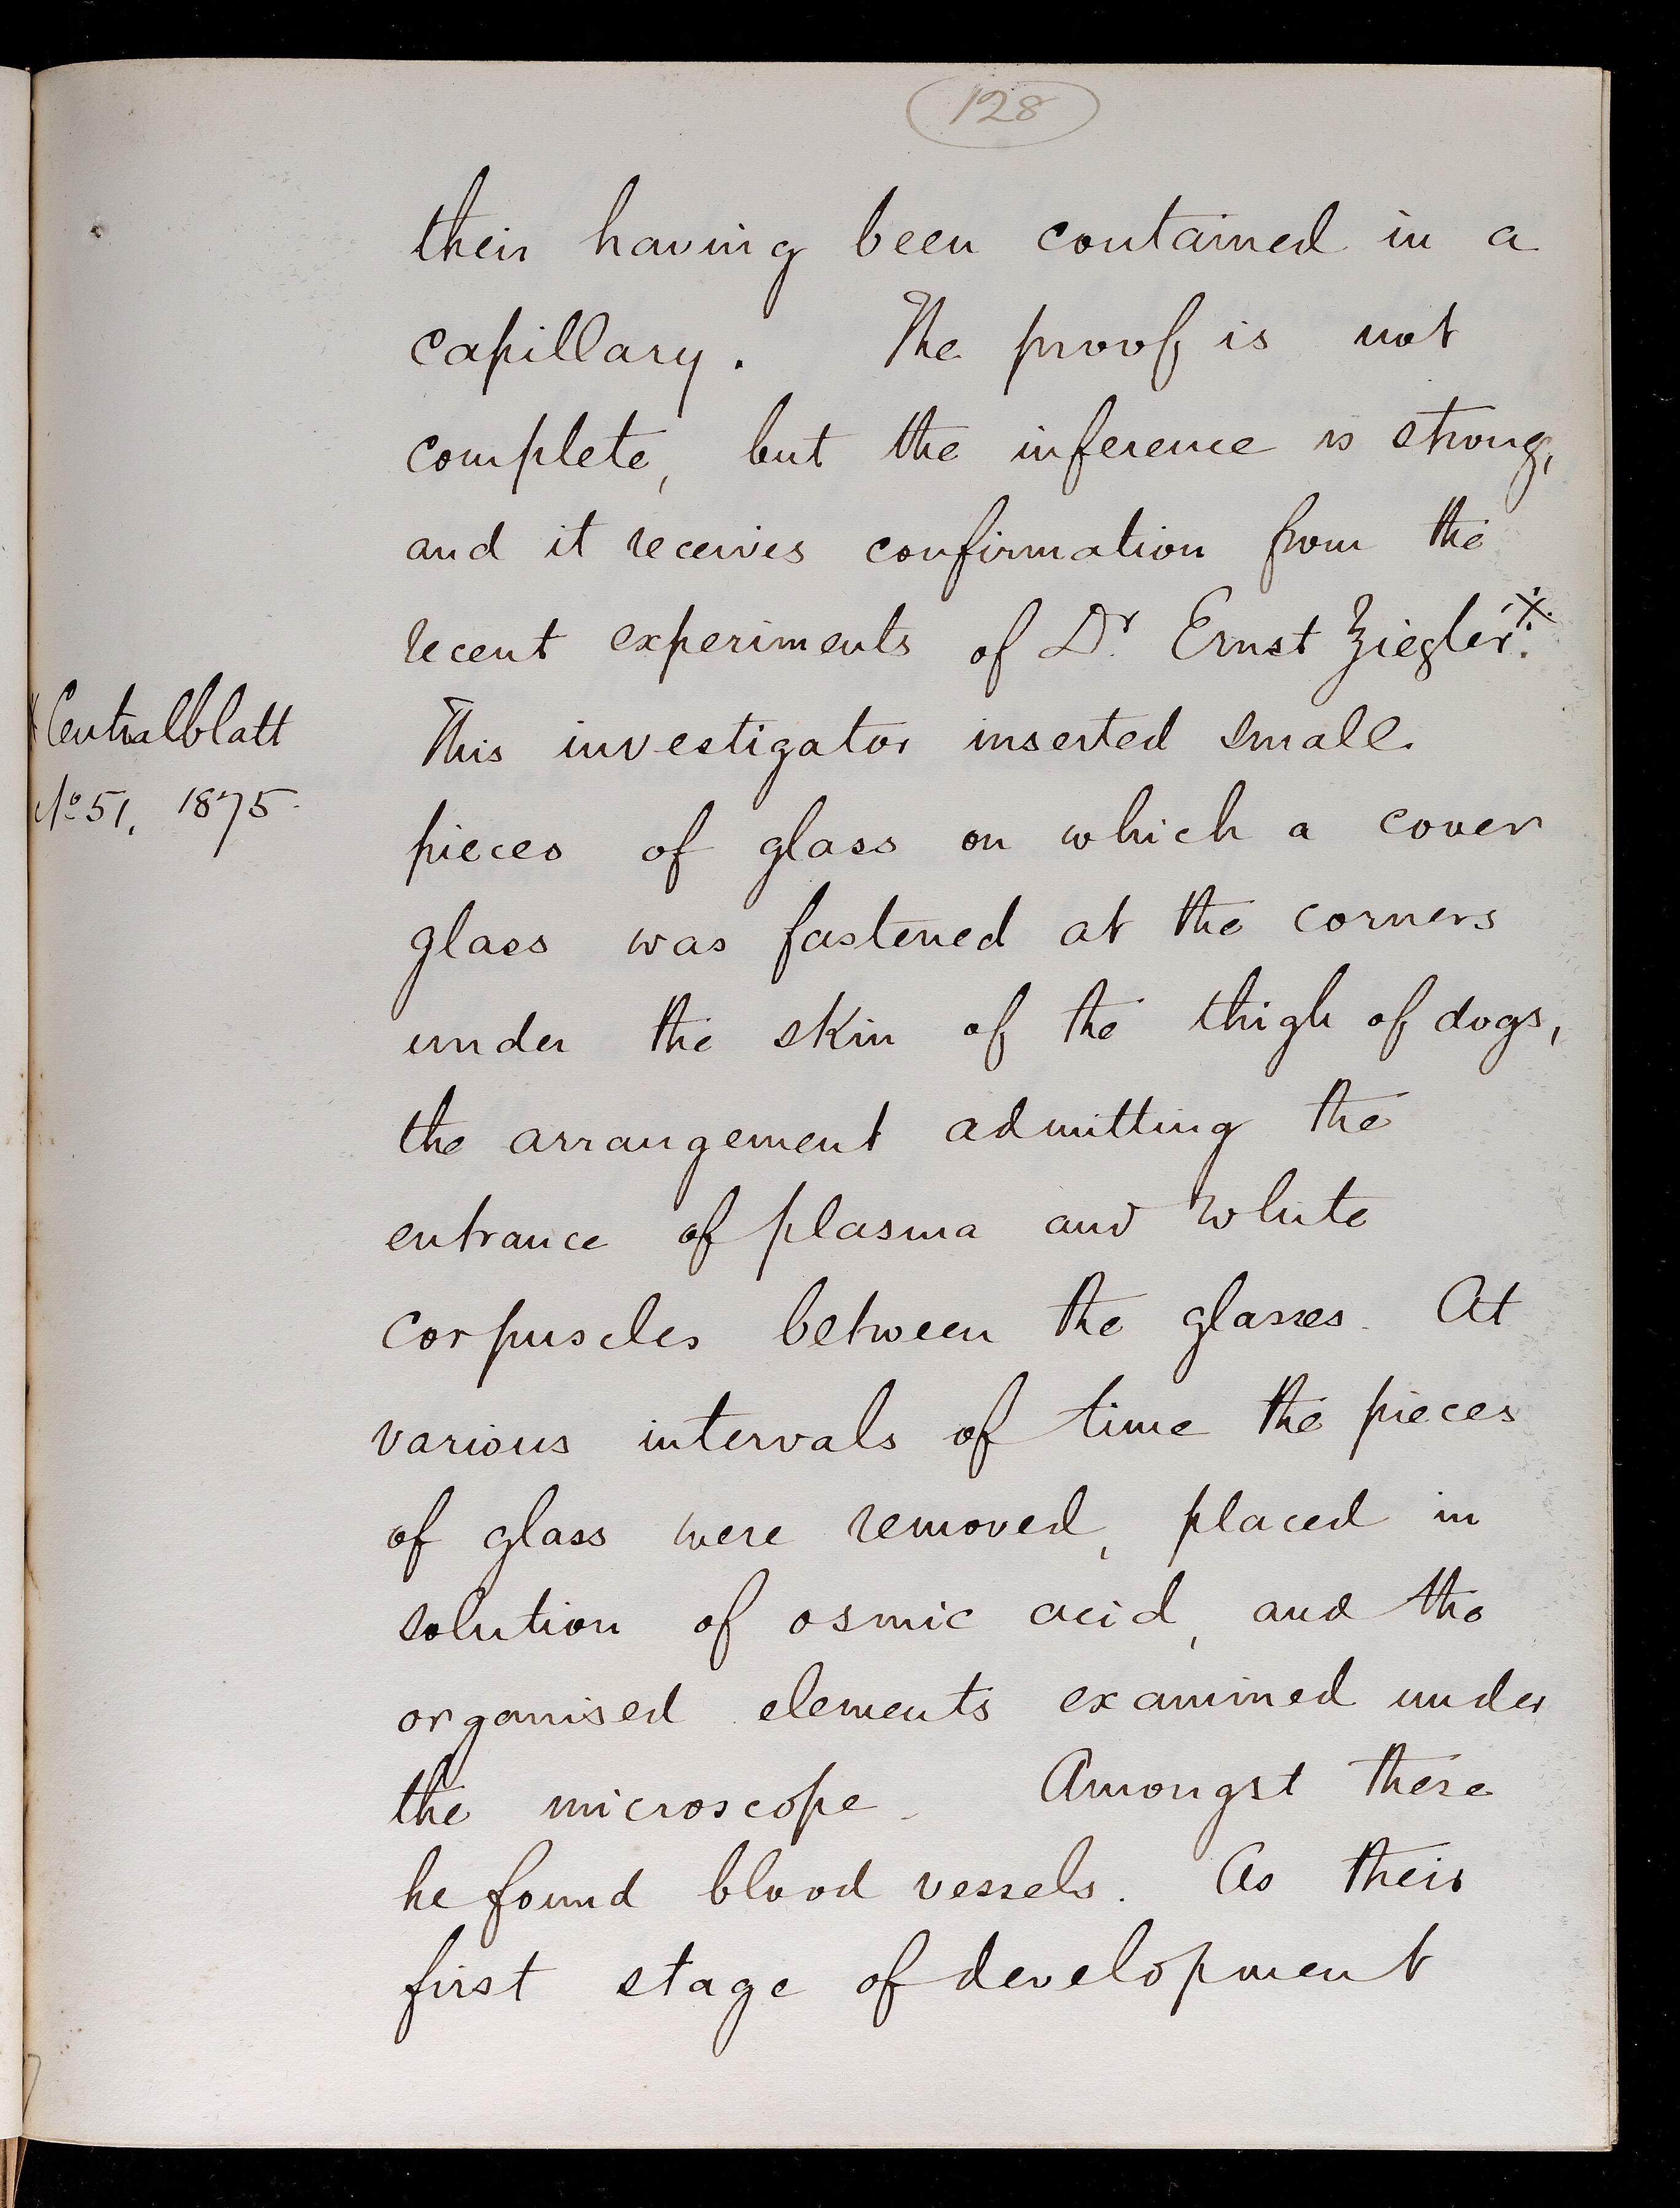 128
their having been contained in a
capillary. The proof is not
complete, but the inference is strong,
and it receives confirmation from the
recent experiments of Dr. Ernst Ziegler.※
※ Centralblatt
No 51, 1875.
This investigator inserted small
pieces of glass on which a cover
glass was fastened at the corners
under the skin of the thigh of dogs,
the arrangement admitting the
entrance of plasma and white
corpuscles between the glasses. At
various intervals of time the pieces
of glass were removed, placed in
solution of osmic acid, and the
organised elements examined under
the microscope. Amongst these
he found blood vessels. As their
first stage of development